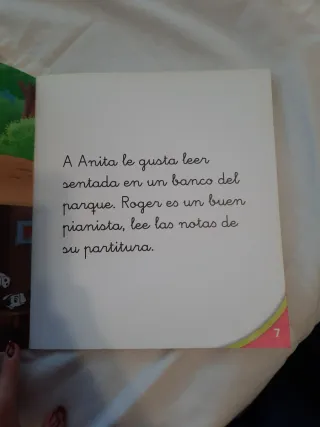 A Anita le gusta leer
sentada en un banco del
parque. Roger es un buen
pianista, lee las notas de
su partitura.
7